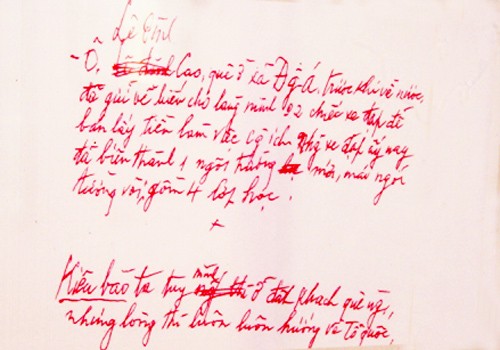 Lê Đình
- Ô. Cao, quê ở xã Đ.Á. trước khi về nước,
đã gửi về biếu chú làng mình 92 chiếc xe đạp để
bán lấy tiền làm việc có ích. Những xe đạp ấy nay
đã biến thành 1 ngôi trường mới, mái ngói
tường vôi, gồm 4 lớp học.
+
Kiều bào ta tuy mình ở đất khách quê người,
nhưng lòng thì luôn luôn hướng về Tổ quốc,